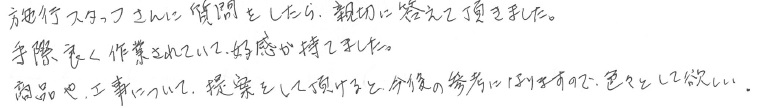 施行スタッフさんに質問をしたら、親切に答えて頂きました。
手際良く作業されていて、好感が持てました。
商品や、工事について、提案をして頂けると、今後の参考になりますので、色々として欲しい。